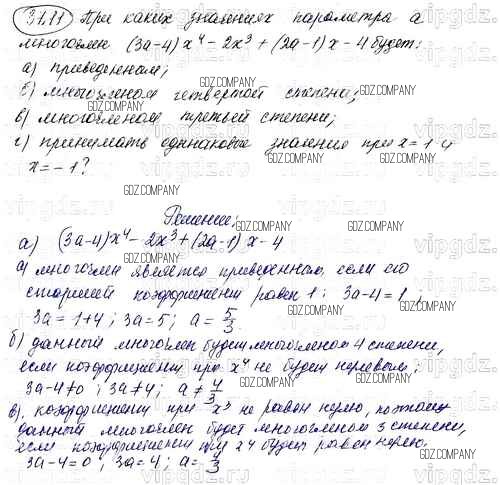 31.11 При каких значениях параметра а
многочлен (3a-4)x⁴ - 2x³ + (2a-1)x - 4 будет:
а) приведенным;
б) многочленом четвертой степени;
в) многочленом третьей степени;
г) принимать одинаковые значения при x=1 и
x=-1?
Решение;
а) (3a-4)x⁴ - 2x³ + (2a-1)x - 4
а) многочлен является приведенным, если его
старший коэффициент равен 1: 3a-4=1,
3a=1+4; 3a=5; a=5/3.
б) данный многочлен будет многочленом 4 степени,
если коэффициент при x⁴ не будет нулевым;
3a-4≠0; 3a≠4; a≠4/3
в). коэффициент при x³ не равен нулю, поэтому
данный многочлен будет многочленом 3 степени,
если коэффициент при x4 будет равен нулю.
3a-4=0; 3a=4; a=4/3
GDZ.COMPANY
vipgdz.com